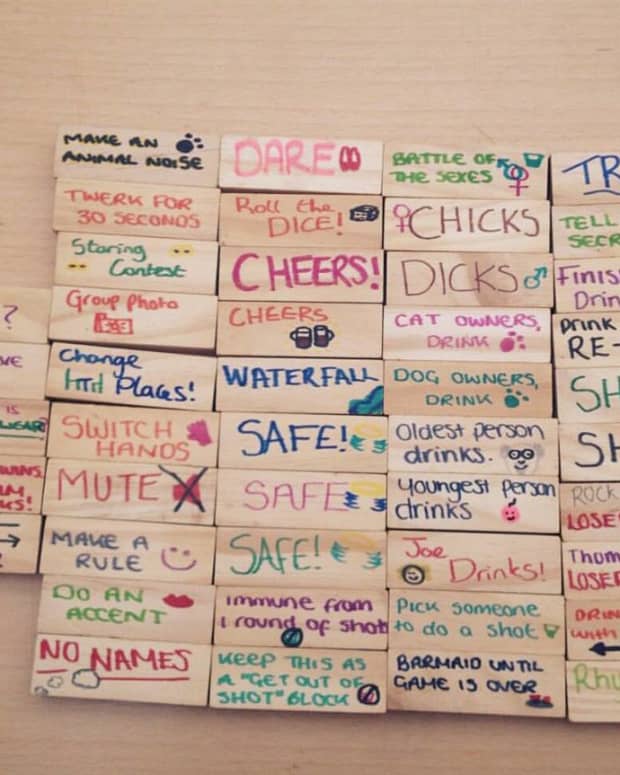 ?
VE
IS
MAKE AN
ANIMAL NOISE
TWERK FOR
30 SECONDS
Staring
Contest
Group Photo
Change
Places!
SWITCH
HANDS
MUTE
MAKE A
RULE
DO AN
ACCENT
NO NAMES
DARE
Roll the
DICE!
CHEERS!
CHEERS
WATERFALL
SAFE!
SAFE
SAFE!
immune from
1 round of shots
KEEP THIS AS
A "GET OUT OF
SHOT" BLOCK
BATTLE OF
THE SEXES
CHICKS
DICKS
CAT OWNERS,
DRINK
DOG OWNERS,
DRINK
Oldest person
drinks.
Youngest Person
drinks
Joe
Drinks!
Pick someone
to do a shot
BARMAID UNTIL
GAME IS OVER
TR
TELL
SECR
Finis
Drin
Drink
RE-
SH
SH
ROCK
LOSE
Thum
LOSER
DRIN
with
Rhy